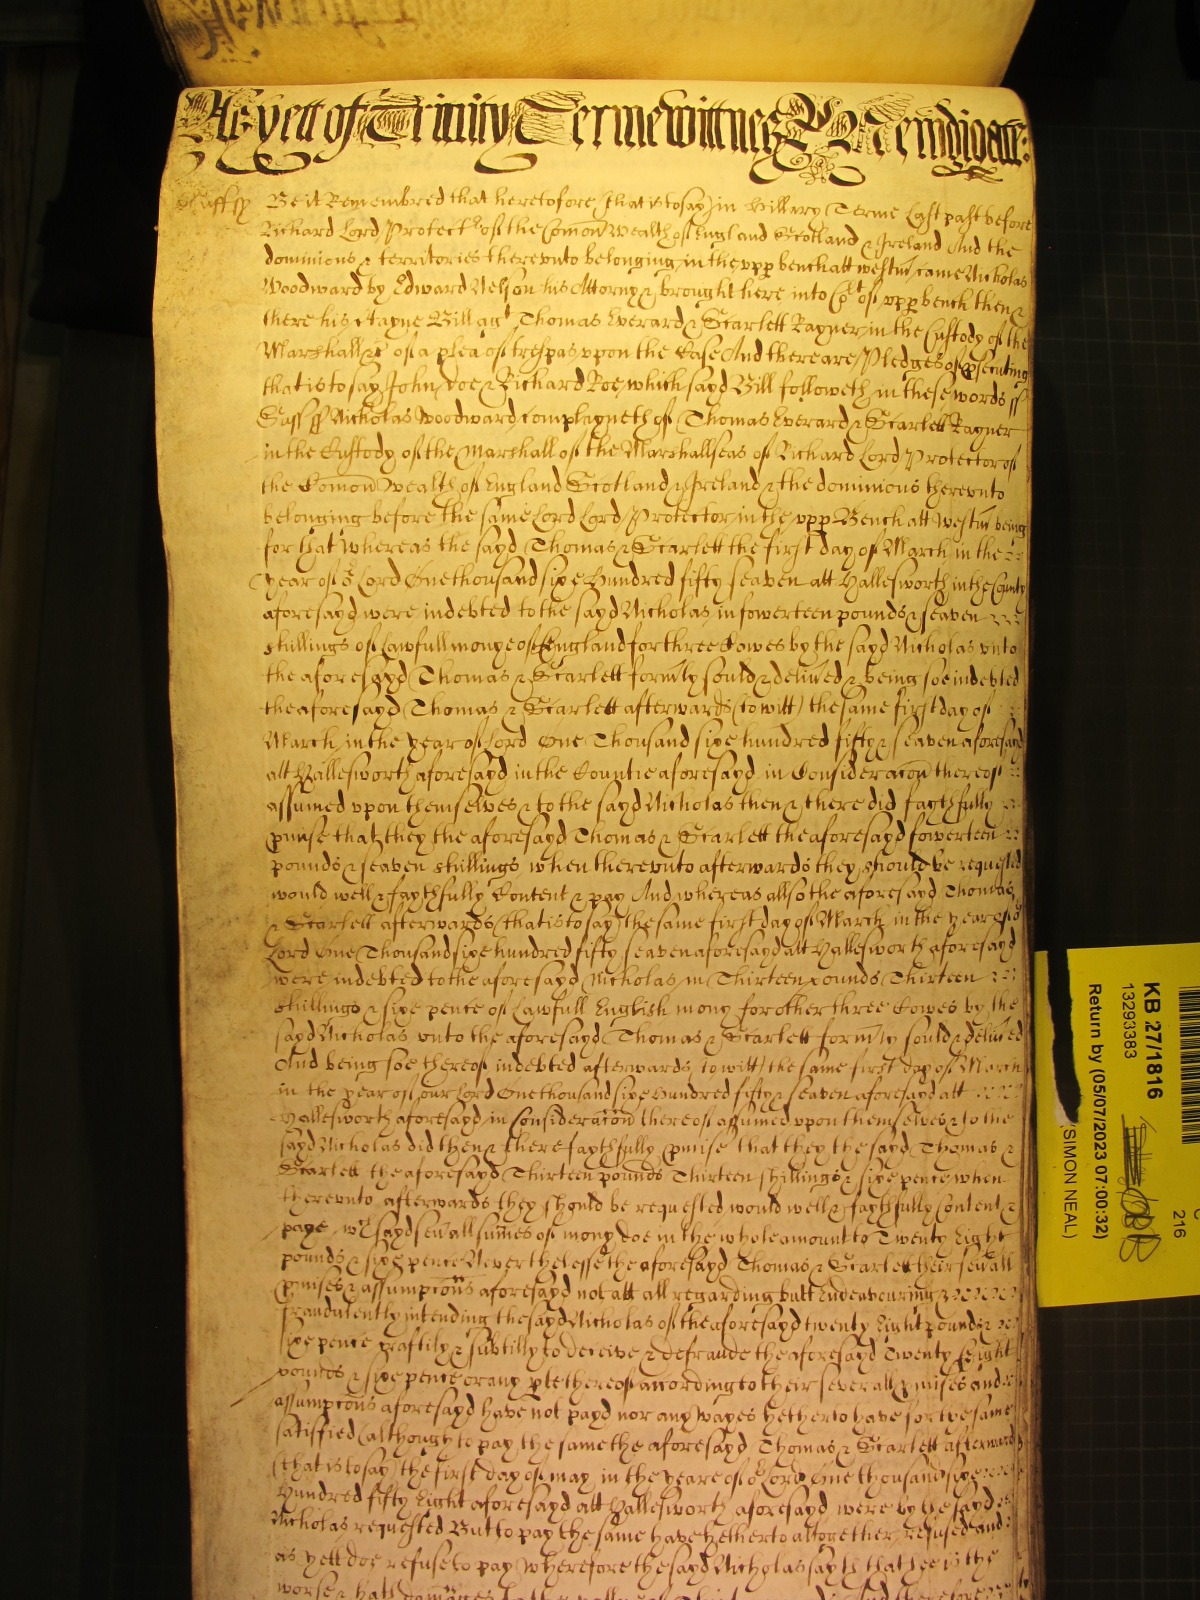 As yett of Trinity Terme wittnes R Newdigate:
Suff ss Be it Remembred that heretofore (that is to say) in Hillary Terme Last past before
Richard Lord Protectr of the Com̄on Wealth of England Scotland & Ireland And the
dominions & territories therevnto belonging in the vpp bench att Westm̄ came Nicholas
Woodward by Edward Nelson his Attorny & brought here into Crt of vpp bench then &
there his Bill agt Thomas Everard & Scarlett Rayner in the Custody of the
Marshall &c of a plea of trespas vpon the Case And there are Pledges of psecuting
that is to say John Doe & Richard Roe which sayd Bill followeth in these words ss
Suff ss Nicholas Woodward complayneth of Thomas Everard & Scarlett Rayner
in the Custody of the Marshall of the Marshallseas of Richard Lord Protector of
the Com̄on Wealth of England Scotland & Ireland & the dominions therevnto
belonging before the same Lord Lord Protector in the vpp Bench att Westm̄ being
for that Whereas the sayd Thomas & Scarlett the first day of March in the
year of or Lord One thousand sixe Hundred fifty seaven att Hallesworth in the County
aforesayd were indebted to the sayd Nicholas in fowerteen pounds & seaven
shillings of Lawfull monye of England for three Cowes by the sayd Nicholas vnto
the aforesayd Thomas & Scarlett form̄ly sould & deliv̄ed & being soe indebted
the aforesayd Thomas & Scarlett afterwards (to witt) the same first day of
March in the year of Lord One Thousand sixe hundred fifty & seaven aforesayd
att Hallesworth aforesayd in the Countie aforesayd in Consideracon̄ thereof
assumed vpon themselves & to the sayd Nicholas then & there did faythfully
pmise that they the aforesayd Thomas & Scarlett the aforesayd fowerteen
pounds & seaven shillings when therevnto afterwards they should be requested
would well & faythfully Content & pay And whereas allso the aforesayd Thomas
& Scarlett afterwards (that is to say) the same first day of March in the year of or
Lord One Thousand sixe hundred fifty seaven aforesayd att Hallesworth aforesayd
were indebted to the aforesayd Nicholas in Thirteen pounds Thirteen
shillings & sixe pence of Lawfull English mony for other three Cowes by the
sayd Nicholas vnto the aforesayd Thomas & Scarlett form̄ly sould & deliv̄ed
And being soe thereof indebted afterwards (to witt) the same first day of March
in the year of our Lord One thousand sixe Hundred fifty & seaven aforesayd att
Hallesworth aforesayd in Consideracon̄ thereof assumed vpon themselves & to the
sayd Nicholas did then & there faythfully pmise that they the sayd Thomas &
Scarlett the aforesayd Thirteen pounds Thirteen shillings & sixe pence when
therevnto afterwards they should be requested would well & faythfully Content &
paye wch sayd sev̄all sum̄es of mony doe in the whole amount to Twenty Eight
pounds & sixe pence Neverthelesse the aforesayd Thomas & Scarlett their sev̄all
pmises & assumpcon̄s aforesayd not att all regarding butt Endeavouring &
fraudulently intending the sayd Nicholas of the aforesayd twenty Eight pounds &
sixe pence craftily & subtilly to deceive & defraude the aforesayd Twenty Eight
pounds & sixe pence or any pte thereof according to their severall pmises and
assumpcon̄s aforesayd have not payd nor any wayes hetherto have for the same
satisfied (although to pay the same the aforesayd Thomas & Scarlett afterwards
(that is to say) the first day of may in the yeare of or Lord One thousand sixe
Hundred fifty Eight aforesayd att Hallesworth aforesayd were by the sayd
Nicholas requested But to pay the same have hetherto altogether refused and
as yett doe refuse to pay Wherefore the sayd Nicholas sayth that hee is the
worse & hath damages
KB 27/1816
13293383
Return by (05/07/2023 07:00:32)
(SIMON NEAL)
216